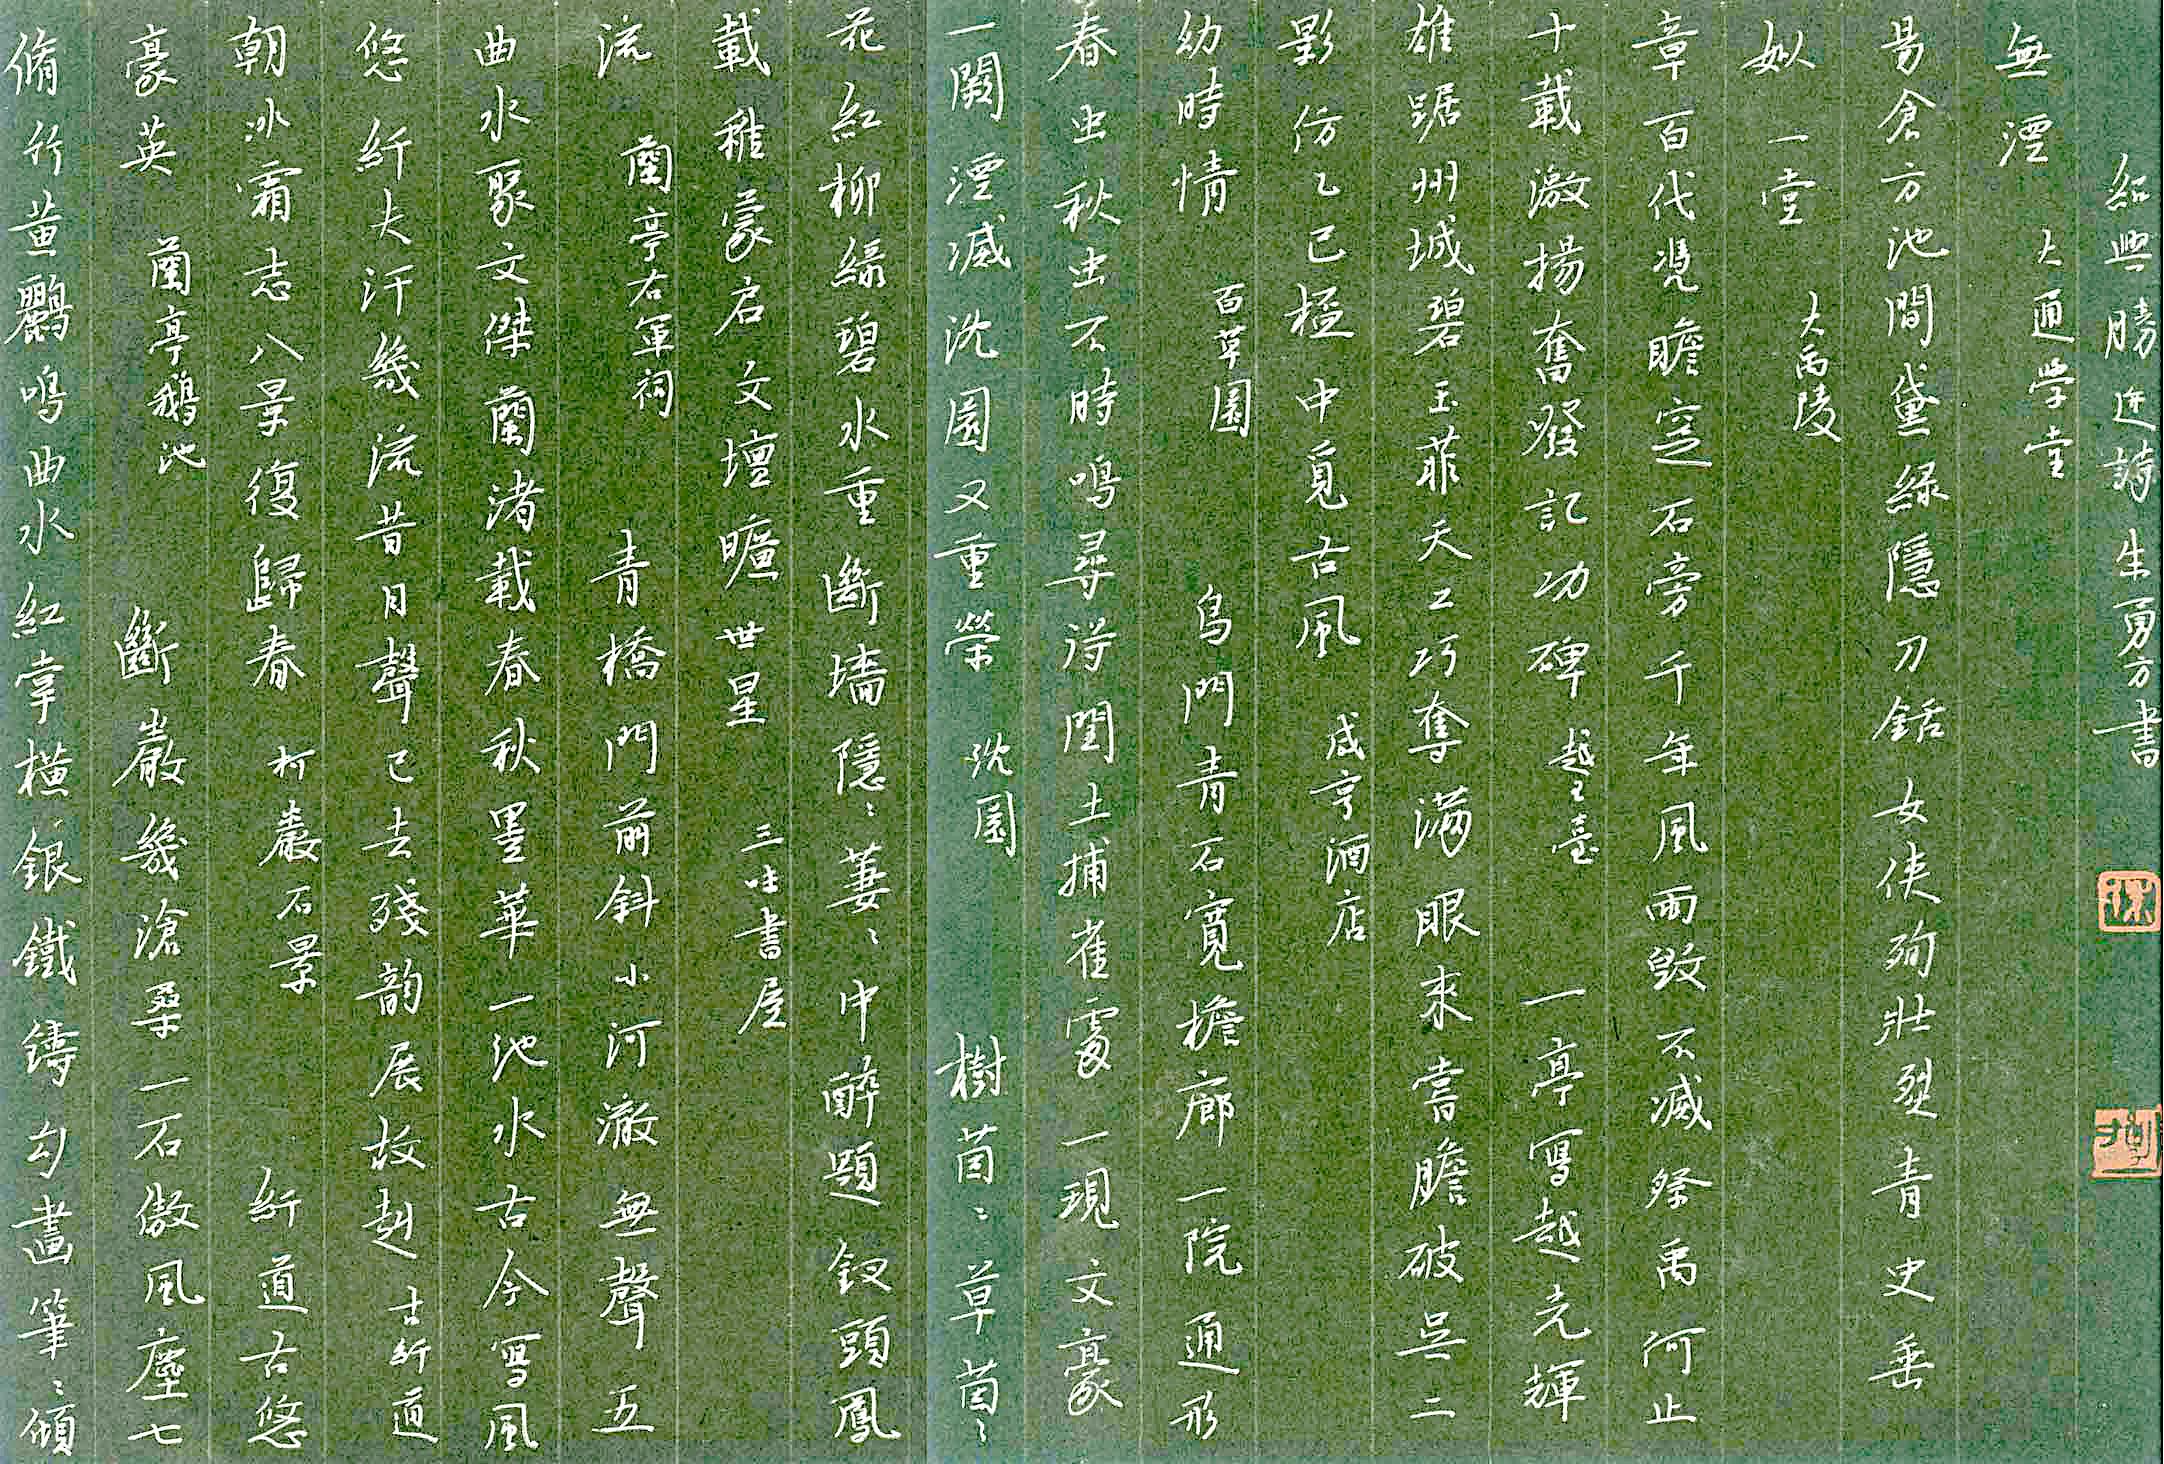 脩竹黄鸝鳴曲水紅掌橫銀鐵鑄勾畫筆〻傾
豪英 蘭亭鵝池 斷巖幾滄桑一石傲風塵七
朝冰霜志八景復歸春 柯巖石景 纤道古悠
悠纤夫汗幾流昔日聲已去殘韵展故赳 古纤道
曲水聚文傑蘭渚載春秋墨華一池水古今寫風
流 蘭亭右軍祠 青橋門前斜小河澈無聲五
載稚蒙启文壇曠世星 三味書屋
花紅柳緑碧水重斷墻隱〻萋〻中醉題釵頭鳳
一闋湮滅沈園又重榮 沈園 樹茵〻草茵〻
春虫秋虫不時鳴尋得閏土捕雀處一現文豪
幼時情 百草園 烏門青石寬檐廊一院通形
影仿乙已楹中覓古風 咸亨酒店
雄踞州城碧玉菲天工巧奪滿眼來嘗膽破吳二
十載激揚奮發記功碑 越王臺 一亭寫越光輝
章百代凴瞻窆石旁千年風雨毀不滅祭禹何止
姒一堂 大禹陵
昜倉方池間黛綠隱刀銛女俠殉壯烈青史垂
無湮 大通學堂
紹興勝迹詩朱勇方書